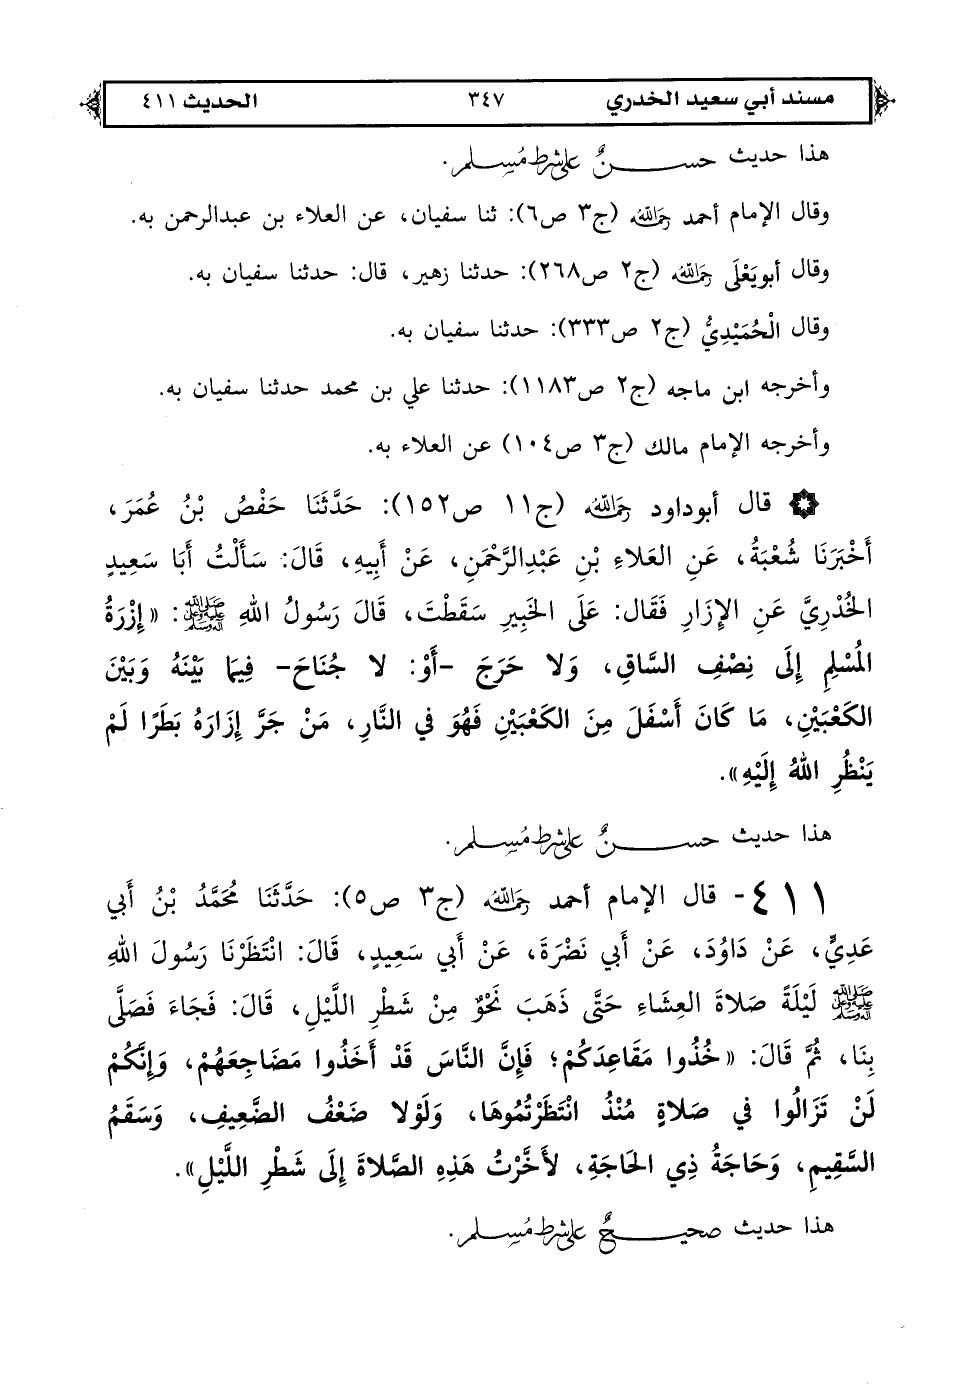 مسند أبي سعيد الخدري ٣٤٧ الحديث ٤١١
هذا حديث حسنٌ على شرط مُسلم.
وقال الإمام أحمد رحمه الله (ج٣ ص٦): ثنا سفيان، عن العلاء بن عبدالرحمن به.
وقال أبويَعْلَى رحمه الله (ج٢ ص٢٦٨): حدثنا زهير، قال: حدثنا سفيان به.
وقال الْحُمَيْدِيُّ (ج٢ ص٣٣٣): حدثنا سفيان به.
وأخرجه ابن ماجه (ج٢ ص١١٨٣): حدثنا علي بن محمد حدثنا سفيان به.
وأخرجه الإمام مالك (ج٣ ص١٠٤) عن العلاء به.
قال أبوداود رحمه الله (ج١١ ص١٥٢): حَدَّثَنَا حَفْصُ بْنُ عُمَرَ،
أَخْبَرَنَا شُعْبَةُ، عَنِ العَلاءِ بْنِ عَبْدِالرَّحْمَنِ، عَنْ أَبِيهِ، قَالَ: سَأَلْتُ أَبَا سَعِيدٍ
الخُدْرِيَّ عَنِ الإِزَارِ فَقَال: عَلَى الخَبِيرِ سَقَطْتَ، قَالَ رَسُولُ اللهِ ﷺ: «إِزْرَةُ
المُسْلِمِ إِلَى نِصْفِ السَّاقِ، وَلا حَرَجَ -أَوْ: لا جُنَاحَ- فِيمَا بَيْنَهُ وَبَيْنَ
الكَعْبَيْنِ، مَا كَانَ أَسْفَلَ مِنَ الكَعْبَيْنِ فَهُوَ فِي النَّارِ، مَنْ جَرَّ إِزَارَهُ بَطَرًا لَمْ
يَنْظُرِ اللهُ إِلَيْهِ».
هذا حديث حسنٌ على شرط مُسلم.
٤١١- قال الإمام أحمد رحمه الله (ج٣ ص٥): حَدَّثَنَا مُحَمَّدُ بْنُ أَبِي
عَدِيٍّ، عَنْ دَاوُدَ، عَنْ أَبِي نَضْرَةَ، عَنْ أَبِي سَعِيدٍ، قَالَ: انْتَظَرْنَا رَسُولَ اللهِ
ﷺ لَيْلَةً صَلاةَ العِشَاءِ حَتَّى ذَهَبَ نَحْوٌ مِنْ شَطْرِ اللَّيْلِ، قَالَ: فَجَاءَ فَصَلَّى
بِنَا، ثُمَّ قَالَ: «خُذُوا مَقَاعِدَكُمْ؛ فَإِنَّ النَّاسَ قَدْ أَخَذُوا مَضَاجِعَهُمْ، وَإِنَّكُمْ
لَنْ تَزَالُوا فِي صَلاةٍ مُنْذُ انْتَظَرْتُمُوهَا، وَلَوْلا ضَعْفُ الضَّعِيفِ، وَسَقَمُ
السَّقِيمِ، وَحَاجَةُ ذِي الحَاجَةِ، لأَخَّرْتُ هَذِهِ الصَّلاةَ إِلَى شَطْرِ اللَّيْلِ».
هذا حديث صحيحٌ على شرط مُسلم.